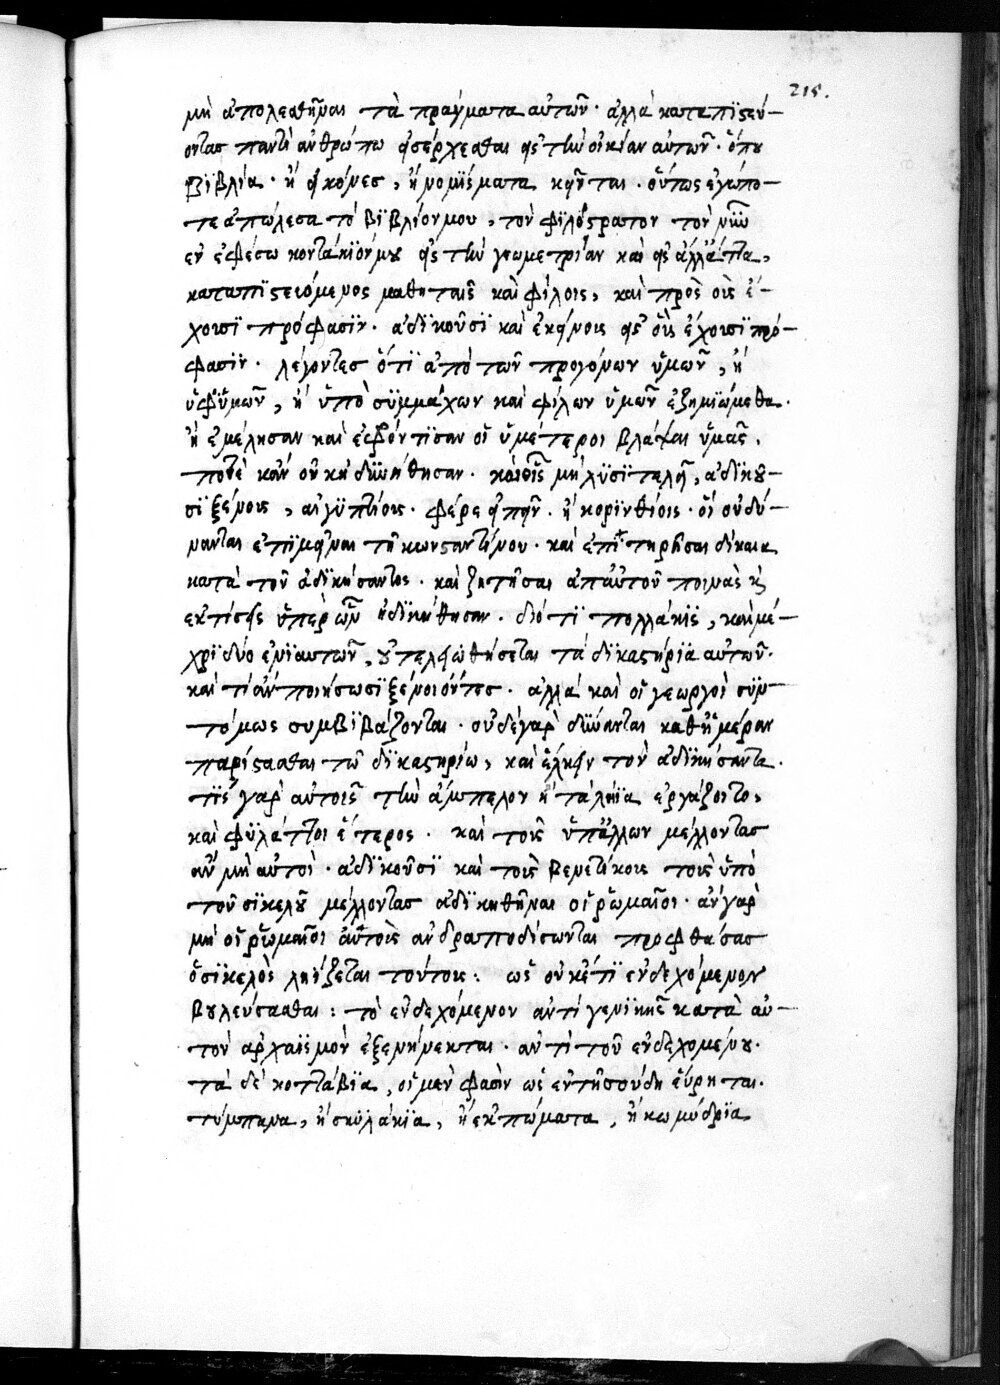 215.
μὴ ἀπολεσθῆναι τὰ πράγματα αὐτῶν· ἀλλὰ καταπϊστεύ-
οντας παντὶ ἀνθρώπω εἰσέρχεσθαι εἰς τὴν οἰκίαν αὐτῶν· ὅπου
βϊβλία· ἢ εἰκόνες, ἢ νομίσματα κεῖνται· οὕτως ἐγώ πο-
τε ἀπώλεσα τὸ βϊβλίον μου, τὸν φϊλόστρατον τὸν νῦν
ἐν ἐφέσω κοντάκϊόν μου εἰς τὴν γεωμετρίαν καὶ εἰς ἀλλάττα,
καταπϊστευόμενος μαθηταῖς καὶ φίλοις, καὶ πρὸς οἷς ἔ-
χουσϊ πρόφασϊν· ἀδϊκοῦσϊ καὶ ἐκείνοις εἰς οὓς ἔχουσϊ πρό-
φασϊν· λέγοντες ὅτϊ ἀπὸ τῶν προγόνων ὑμῶν, ἢ
ὑφ' ὑμῶν, ἢ ὑπὸ συμμάχων καὶ φίλων ὑμῶν ἐζημϊώμεθα.
ἢ ἐμέλησαν καὶ ἐφρόντϊσαν οἱ ὑμέτεροι βλάψαι ὑμᾶς,
ποτὲ κἂν οὐκ ἠδυνήθησαν· μὴ λϋσϊτελῆ, ἀδϊκοῦ-
σϊ ξένοις, αἰγϋπτίοις· φέρε εἰπεῖν· ἢ κορϊνθίοις· οἳ οὐ δύ-
νανται ἐπϊμεῖναι τῆ κωνσταντίνου· καὶ ἐπϊτηρῆσαι δίκαια
κατὰ τοῦ ἀδϊκήσαντος· καὶ ζητῆσαι ἀπ' αὐτοῦ ποινὰς καὶ
ἐκτίσεις ὑπὲρ ὧν ἠδϊκήθησαν· διότϊ πολλάκϊς, καὶ μέ-
χρϊ δύο ἐνϊαυτῶν, οὐ τελειωθήσεται τὰ δϊκαστήρϊα αὐτῶν·
καὶ τί ἂν ποιήσωσϊ ξένοι ὄντες· ἀλλὰ καὶ οἱ γεωργοὶ συν-
τόμως συμβϊβάζονται· οὐδὲ γὰρ δύνανται καθ' ἡμέραν
παρίστασθαι τῶ δϊκαστηρίω, καὶ ἕλκειν τὸν ἀδϊκήσαντα.
τίς γὰρ αὐτοῖς τὴν ἄμπελον ἢ τὰ λήϊα ἐργάζοιτο,
καὶ φϋλάττοι ἕτερος· καὶ τοὺς ὑπ' ἄλλων μέλλοντας
ἂν μὴ αὐτοὶ· ἀδϊκοῦσϊ καὶ τοὺς βενετίκους τοὺς ὑπὸ
τοῦ σϊκελοῦ μέλλοντας ἀδϊκηθῆναι οἱ ῥωμαῖοι· ἂν γὰρ
μὴ οἱ ῥωμαῖοι αὐτοὺς ἀνδραποδίσωνται προφθάσας
ὁ σϊκελὸς ληΐζεται τούτους: ὡς οὐκέτϊ ἐνδεχόμενον
βουλεύσασθαι: τὸ ἐνδεχόμενον ἀντὶ γενϊκῆς κατὰ αὐ-
τὸν ἀρχαϊσμὸν ἐξενήνεκται· ἀντὶ τοῦ ἐνδεχομένου·
τὰ δὲ κοττάβϊα, οἱ μὲν φασὶν ὡς ἐν τῆ σούδη εὕρηται.
τύμπανα, ἢ σκϋλάκϊα, ἢ ἐκπώματα, ἢ κωμύδρϊα